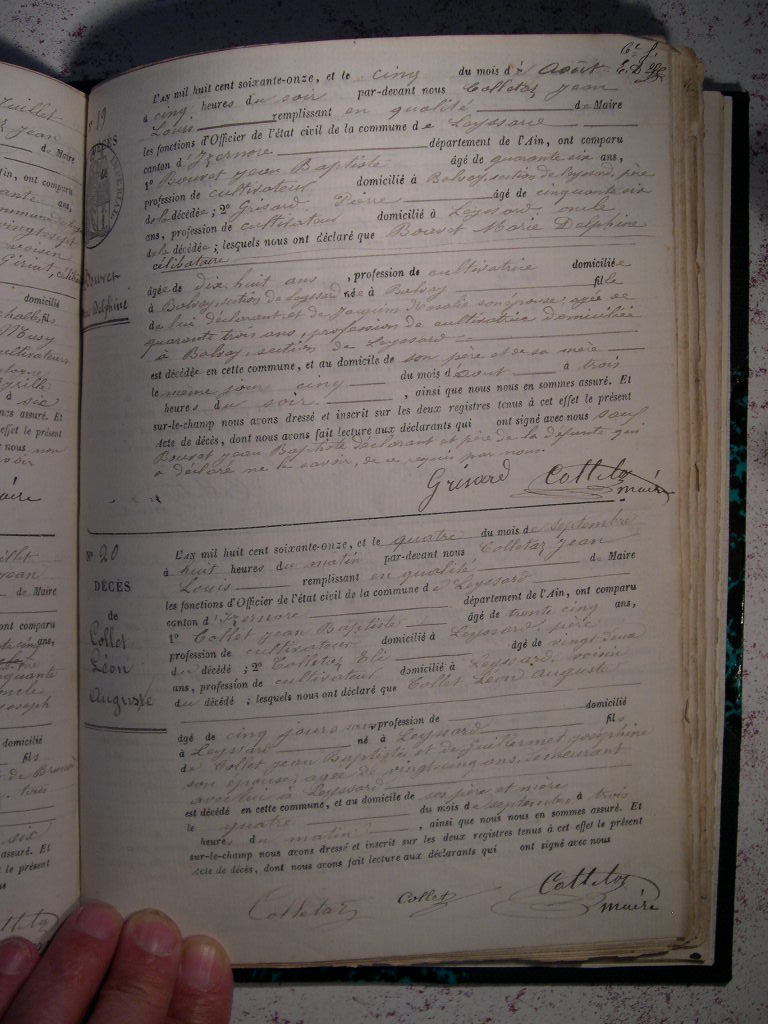 N° 19
DÉCÈS
Bouvet
Marie Delphine
L'AN mil huit cent soixante-onze, et le cinq du mois d'Août
à cinq heures du soir par-devant nous Colletaz Jean
Louis remplissant en qualité de Maire
les fonctions d'Officier de l'état civil de la commune de Leyssard
canton d'Izernore département de l'Ain, ont comparu
1° Bouvet Jean Baptiste âgé de quarante six ans,
profession de cultivateur domicilié à Balvay, section de Leyssard, père
de la décédée ; 2° Grisard Pierre âgé de cinquante six
ans, profession de cultivateur domicilié à Leyssard oncle
de la décédée ; lesquels nous ont déclaré que Bouvet Marie Delphine
célibataire
âgée de dix huit ans, profession de cultivatrice domiciliée
à Balvay, section de Leyssard née à Balvay fille
du lui déclarant et de Jacquin Rosalie son épouse, agée de
quarante trois ans, profession de cultivatrice domiciliée
à Balvay, section de Leyssard
est décédée en cette commune, et au domicile de son père et de sa mère
le même jour cinq du mois d'aout à trois
heures du soir, ainsi que nous nous en sommes assuré. Et
sur-le-champ nous avons dressé et inscrit sur les deux registres tenus à cet effet le présent
Acte de décès, dont nous avons fait lecture aux déclarants qui ont signé avec nous sauf
Bouvet Jean Baptiste déclarant et père de la défunte qui
a déclaré ne le savoir, de ce requis par nous.
Grisard Colletaz
maire
N° 20
DÉCÈS
de
Collet
Léon
Auguste
L'AN mil huit cent soixante-onze, et le quatre du mois de septembre
à huit heures du matin par-devant nous Colletaz Jean
Louis remplissant en qualité de Maire
les fonctions d'Officier de l'état civil de la commune de Leyssard
canton d'Izernore département de l'Ain, ont comparu
1° Collet Jean Baptiste âgé de trente cinq ans,
profession de cultivateur domicilié à Leyssard, père
du décédé ; 2° Colletaz Eli âgé de vingt deux
ans, profession de cultivateur domicilié à Leyssard, voisin
du décédé ; lesquels nous ont déclaré que Collet Léon Auguste
âgé de cinq jours profession de domicilié
à Leyssard né à Leyssard fils
de Collet Jean Baptiste, et de Guillermet Joséphine
son épouse, agée de vingt-cinq ans, demeurant
avec lui à Leyssard
est décédé en cette commune, et au domicile de ses père et mère
le quatre du mois de septembre à trois
heures du matin, ainsi que nous nous en sommes assuré. Et
sur-le-champ nous avons dressé et inscrit sur les deux registres tenus à cet effet le présent
Acte de décès, dont nous avons fait lecture aux déclarants qui ont signé avec nous
Colletaz Collet Colletaz
maire